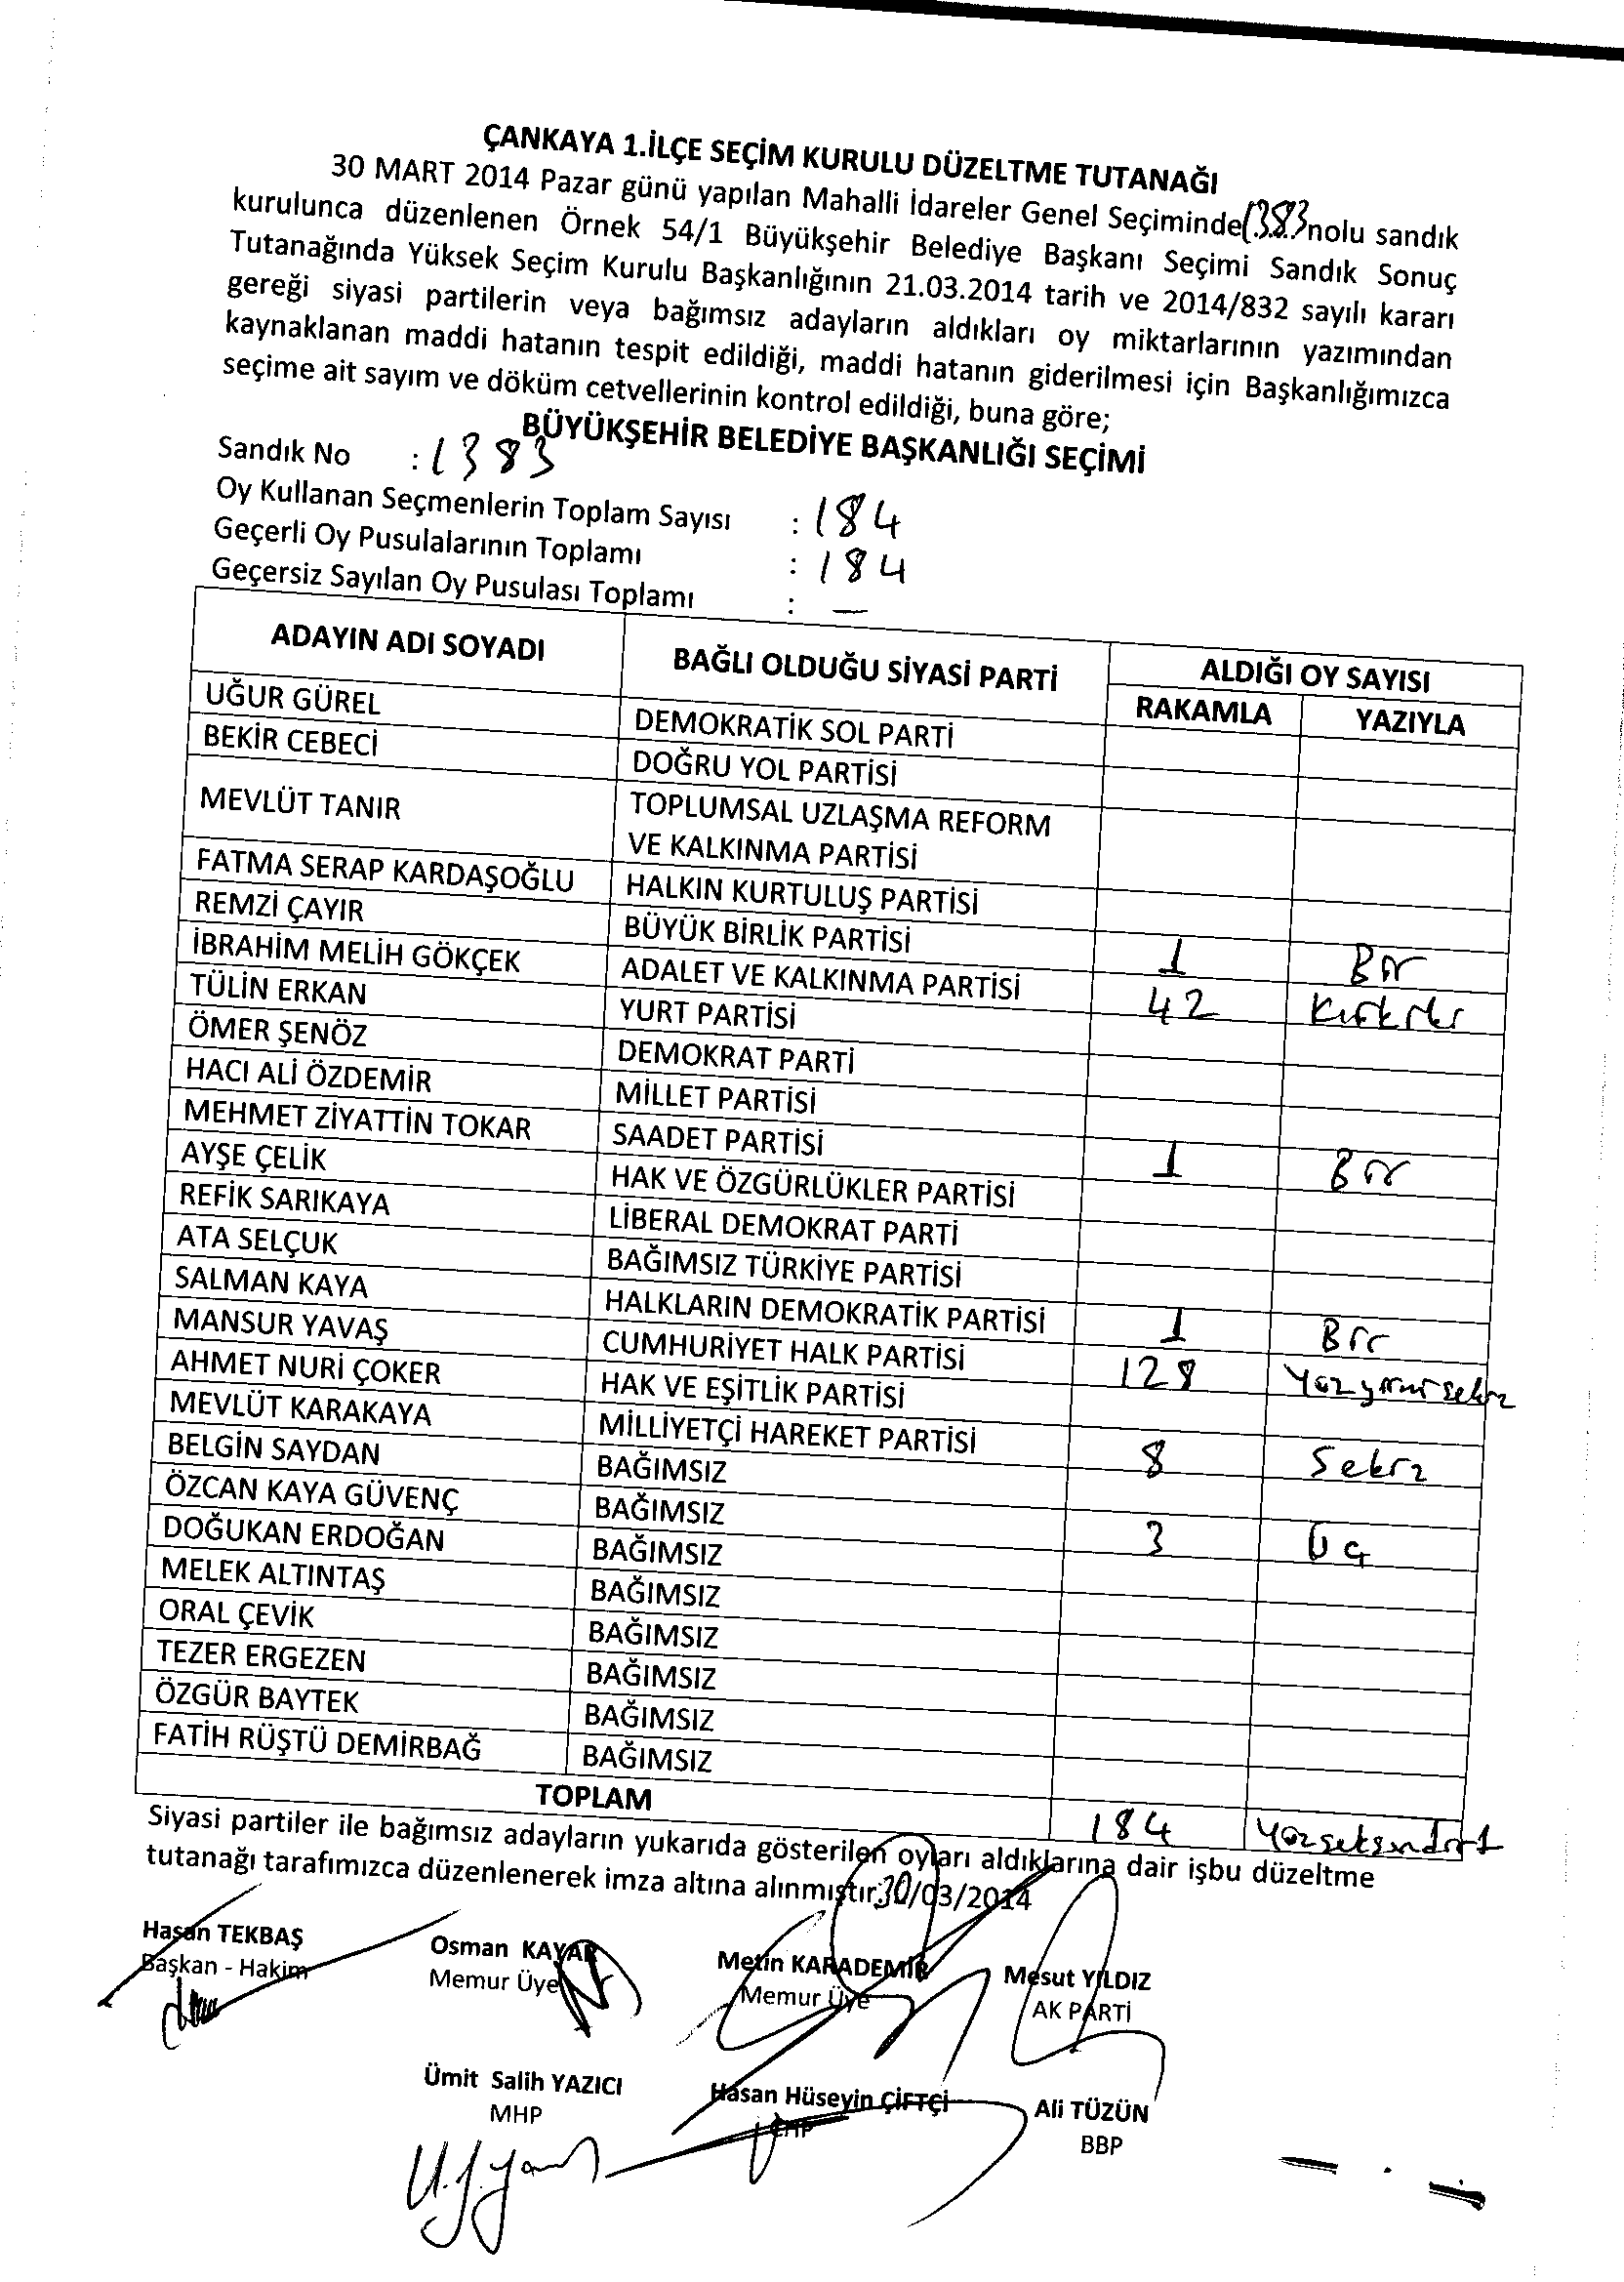 ÇANKAYA 1.İLÇE SEÇİM KURULU DÜZELTME TUTANAĞI
30 MART 2014 Pazar günü yapılan Mahalli İdareler Genel Seçiminde 1383 nolu sandık
kurulunca düzenlenen Örnek 54/1 Büyükşehir Belediye Başkanı Seçimi Sandık Sonuç
Tutanağında Yüksek Seçim Kurulu Başkanlığının 21.03.2014 tarih ve 2014/832 sayılı kararı
gereği siyasi partilerin veya bağımsız adayların aldıkları oy miktarlarının yazımından
kaynaklanan maddi hatanın tespit edildiği, maddi hatanın giderilmesi için Başkanlığımızca
seçime ait sayım ve döküm cetvellerinin kontrol edildiği, buna göre;
BÜYÜKŞEHİR BELEDİYE BAŞKANLIĞI SEÇİMİ
Sandık No : 1383
Oy Kullanan Seçmenlerin Toplam Sayısı : 184
Geçerli Oy Pusulalarının Toplamı : 184
Geçersiz Sayılan Oy Pusulası Toplamı : —
ADAYIN ADI SOYADI BAĞLI OLDUĞU SİYASİ PARTİ ALDIĞI OY SAYISI
RAKAMLA YAZIYLA
UĞUR GÜREL DEMOKRATİK SOL PARTİ
BEKİR CEBECİ DOĞRU YOL PARTİSİ
MEVLÜT TANIR TOPLUMSAL UZLAŞMA REFORM
VE KALKINMA PARTİSİ
FATMA SERAP KARDAŞOĞLU HALKIN KURTULUŞ PARTİSİ
REMZİ ÇAYIR BÜYÜK BİRLİK PARTİSİ 1 Bir
İBRAHİM MELİH GÖKÇEK ADALET VE KALKINMA PARTİSİ 42 Kırkiki
TÜLİN ERKAN YURT PARTİSİ
ÖMER ŞENÖZ DEMOKRAT PARTİ
HACI ALİ ÖZDEMİR MİLLET PARTİSİ
MEHMET ZİYATTİN TOKAR SAADET PARTİSİ 1 Bir
AYŞE ÇELİK HAK VE ÖZGÜRLÜKLER PARTİSİ
REFİK SARIKAYA LİBERAL DEMOKRAT PARTİ
ATA SELÇUK BAĞIMSIZ TÜRKİYE PARTİSİ
SALMAN KAYA HALKLARIN DEMOKRATİK PARTİSİ 1 Bir
MANSUR YAVAŞ CUMHURİYET HALK PARTİSİ 128 Yüzyirmisekiz
AHMET NURİ ÇOKER HAK VE EŞİTLİK PARTİSİ
MEVLÜT KARAKAYA MİLLİYETÇİ HAREKET PARTİSİ 8 Sekiz
BELGİN SAYDAN BAĞIMSIZ
ÖZCAN KAYA GÜVENÇ BAĞIMSIZ 3 Üç
DOĞUKAN ERDOĞAN BAĞIMSIZ
MELEK ALTINTAŞ BAĞIMSIZ
ORAL ÇEVİK BAĞIMSIZ
TEZER ERGEZEN BAĞIMSIZ
ÖZGÜR BAYTEK BAĞIMSIZ
FATİH RÜŞTÜ DEMİRBAĞ BAĞIMSIZ
TOPLAM 184 Yüzseksendört
Siyasi partiler ile bağımsız adayların yukarıda gösterilen oyları aldıklarına dair işbu düzeltme
tutanağı tarafımızca düzenlenerek imza altına alınmıştır.30/03/2014
Hasan TEKBAŞ Osman KAYAR Metin KARADEMİR Mesut YILDIZ
Başkan - Hakim Memur Üye Memur Üye AK PARTİ
Ümit Salih YAZICI Hasan Hüseyin ÇİFTÇİ Ali TÜZÜN
MHP CHP BBP